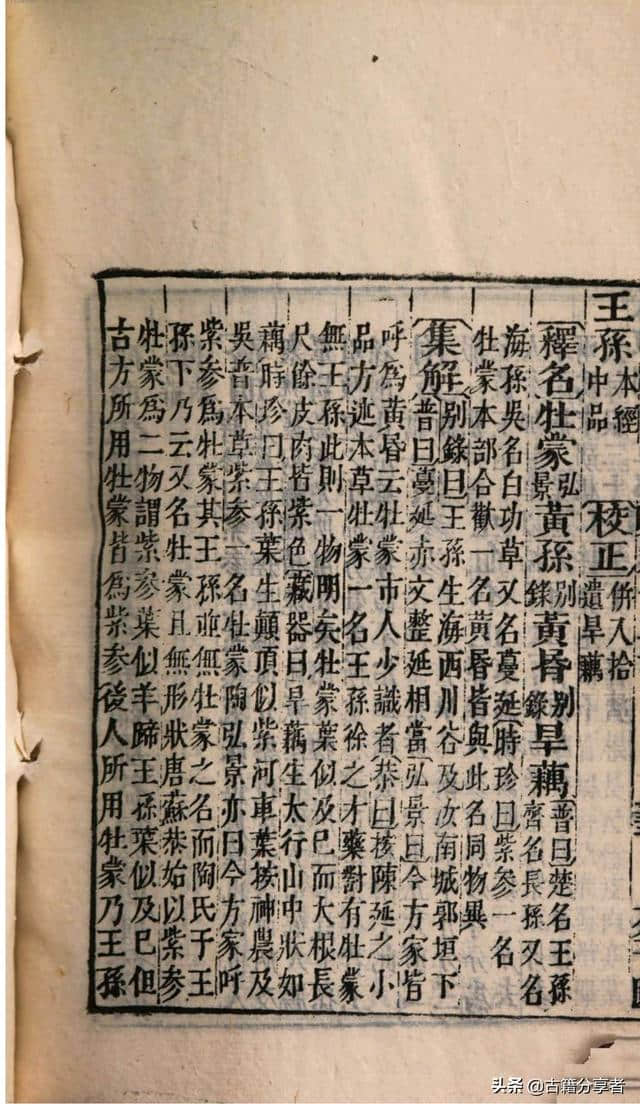 王孫本經中品校正併入拾遺旱藕
釋名牡蒙弘景黃孫别錄黃昏别錄旱藕普曰楚名王孫齊名長孫又名
海孫吳名白功草又名蔓延時珍曰紫參一名
牡蒙本部合歡一名黃昏皆與此名同物異
集解别錄曰王孫生海西川谷及汝南城郭垣下
普曰蔓延赤文莖延相當弘景曰今方家皆
呼爲黃昏云牡蒙市人少識者恭曰按陳延之小
品方述本草牡蒙一名王孫徐之才藥對有牡蒙
無王孫此則一物明矣牡蒙葉似及已而大根長
尺餘皮肉皆紫色藏器曰旱藕生太行山中狀如
藕時珍曰王孫葉生顛頂似紫河車葉按神農及
吳普本草紫參一名牡蒙陶弘景亦曰今方家呼
紫參爲牡蒙其王孫並無牡蒙之名而陶氏于王
孫下乃云又名牡蒙且無形狀唐蘇恭始以紫參
牡蒙爲二物謂紫參葉似羊蹄王孫葉似及已但
古方所用牡蒙皆爲紫參後人所用牡蒙乃王孫
头条 @古籍分享者